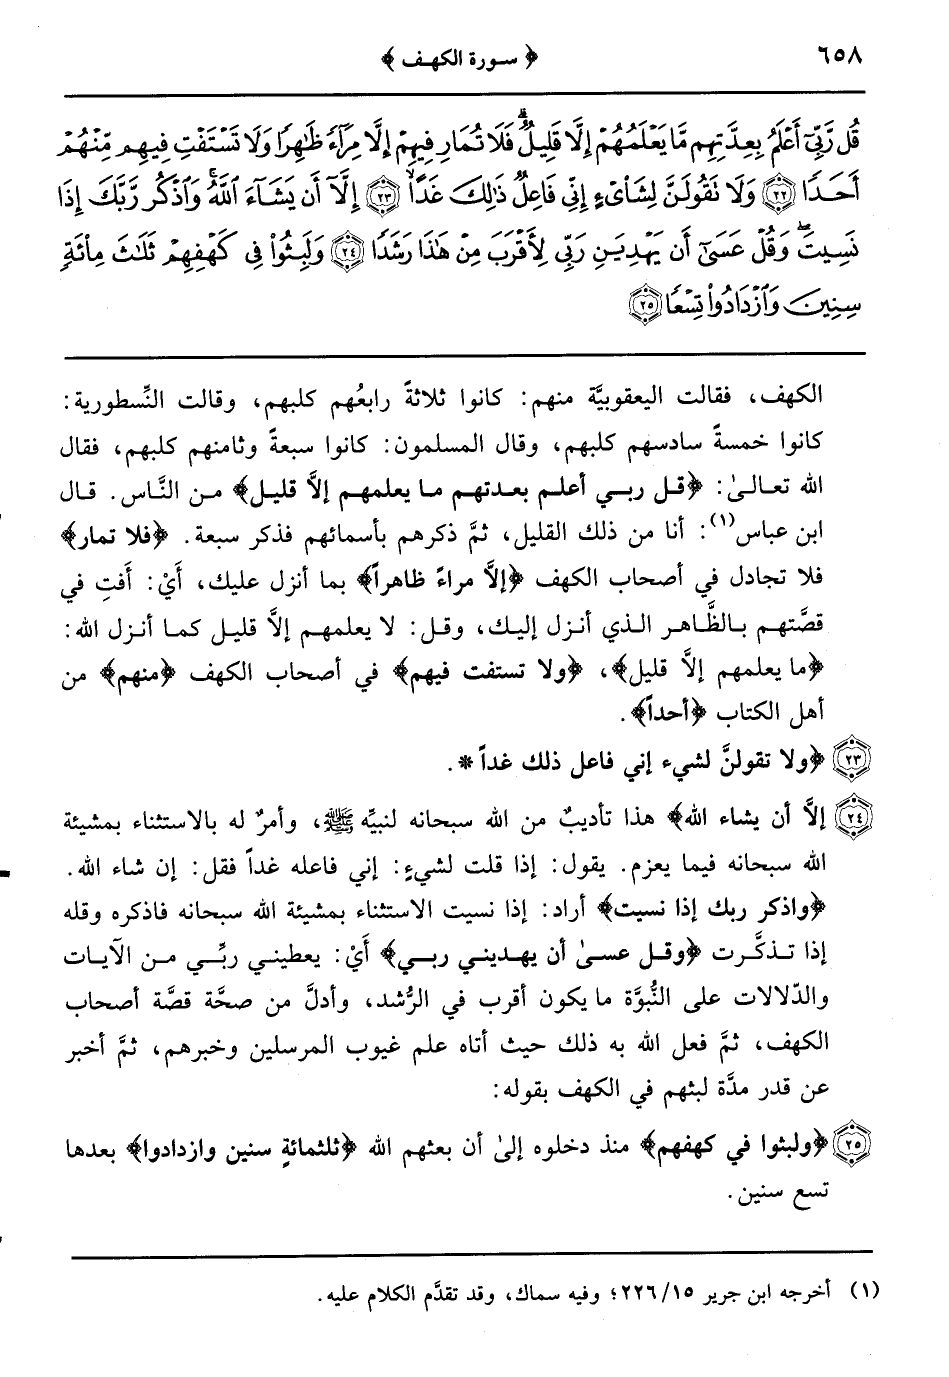 ٦٥٨
﴿ سورة الكهف ﴾
قُل رَّبِّىٓ أَعْلَمُ بِعِدَّتِهِم مَّا يَعْلَمُهُمْ إِلَّا قَلِيلٌ ۗ فَلَا تُمَارِ فِيهِمْ إِلَّا مِرَآءً ظَٰهِرًا وَلَا تَسْتَفْتِ فِيهِم مِّنْهُمْ
أَحَدًا ﴿٢٢﴾ وَلَا تَقُولَنَّ لِشَا۟ىْءٍ إِنِّى فَاعِلٌ ذَٰلِكَ غَدًا ﴿٢٣﴾ إِلَّآ أَن يَشَآءَ ٱللَّهُ ۚ وَٱذْكُر رَّبَّكَ إِذَا
نَسِيتَ وَقُلْ عَسَىٰٓ أَن يَهْدِيَنِ رَبِّى لِأَقْرَبَ مِنْ هَٰذَا رَشَدًا ﴿٢٤﴾ وَلَبِثُوا۟ فِى كَهْفِهِمْ ثَلَٰثَ مِا۟ئَةٍ
سِنِينَ وَٱزْدَادُوا۟ تِسْعًا ﴿٢٥﴾
الكهف، فقالت اليعقوبيَّة منهم: كانوا ثلاثةً رابعُهم كلبهم، وقالت النِّسطورية:
كانوا خمسةً سادسهم كلبهم، وقال المسلمون: كانوا سبعةً وثامنهم كلبهم، فقال
الله تعالىٰ: ﴿قل ربي أعلم بعدتهم ما يعلمهم إلاَّ قليل﴾ من النَّاس. قال
ابن عباس(١): أنا من ذلك القليل، ثمَّ ذكرهم بأسمائهم فذكر سبعة. ﴿فلا تمار﴾
فلا تجادل في أصحاب الكهف ﴿إلاَّ مراءً ظاهراً﴾ بما أنزل عليك، أَيْ: أَفتِ في
قصَّتهم بالظَّاهر الذي أنزل إليك، وقل: لا يعلمهم إلاَّ قليل كما أنزل الله:
﴿ما يعلمهم إلاَّ قليل﴾، ﴿ولا تستفت فيهم﴾ في أصحاب الكهف ﴿منهم﴾ من
أهل الكتاب ﴿أحداً﴾.
٢٣ ﴿ولا تقولنَّ لشيء إني فاعل ذلك غداً *.
٢٤ إلاَّ أن يشاء الله﴾ هذا تأديبٌ من الله سبحانه لنبيِّه ﷺ، وأمرٌ له بالاستثناء بمشيئة
الله سبحانه فيما يعزم. يقول: إذا قلت لشيءٍ: إني فاعله غداً فقل: إن شاء الله.
﴿واذكر ربك إذا نسيت﴾ أراد: إذا نسيت الاستثناء بمشيئة الله سبحانه فاذكره وقله
إذا تذكَّرت ﴿وقل عسىٰ أن يهديني ربي﴾ أَيْ: يعطيني ربِّي من الآيات
والدّلالات على النُّبوَّة ما يكون أقرب في الرُّشد، وأدلَّ من صحَّة قصَّة أصحاب
الكهف، ثمَّ فعل الله به ذلك حيث أتاه علم غيوب المرسلين وخبرهم، ثمَّ أخبر
عن قدر مدَّة لبثهم في الكهف بقوله:
٢٥ ﴿ولبثوا في كهفهم﴾ منذ دخلوه إلىٰ أن بعثهم الله ﴿ثلثمائةٍ سنين وازدادوا﴾ بعدها
تسع سنين.
(١) أخرجه ابن جرير ٢٢٦/١٥؛ وفيه سماك، وقد تقدَّم الكلام عليه.